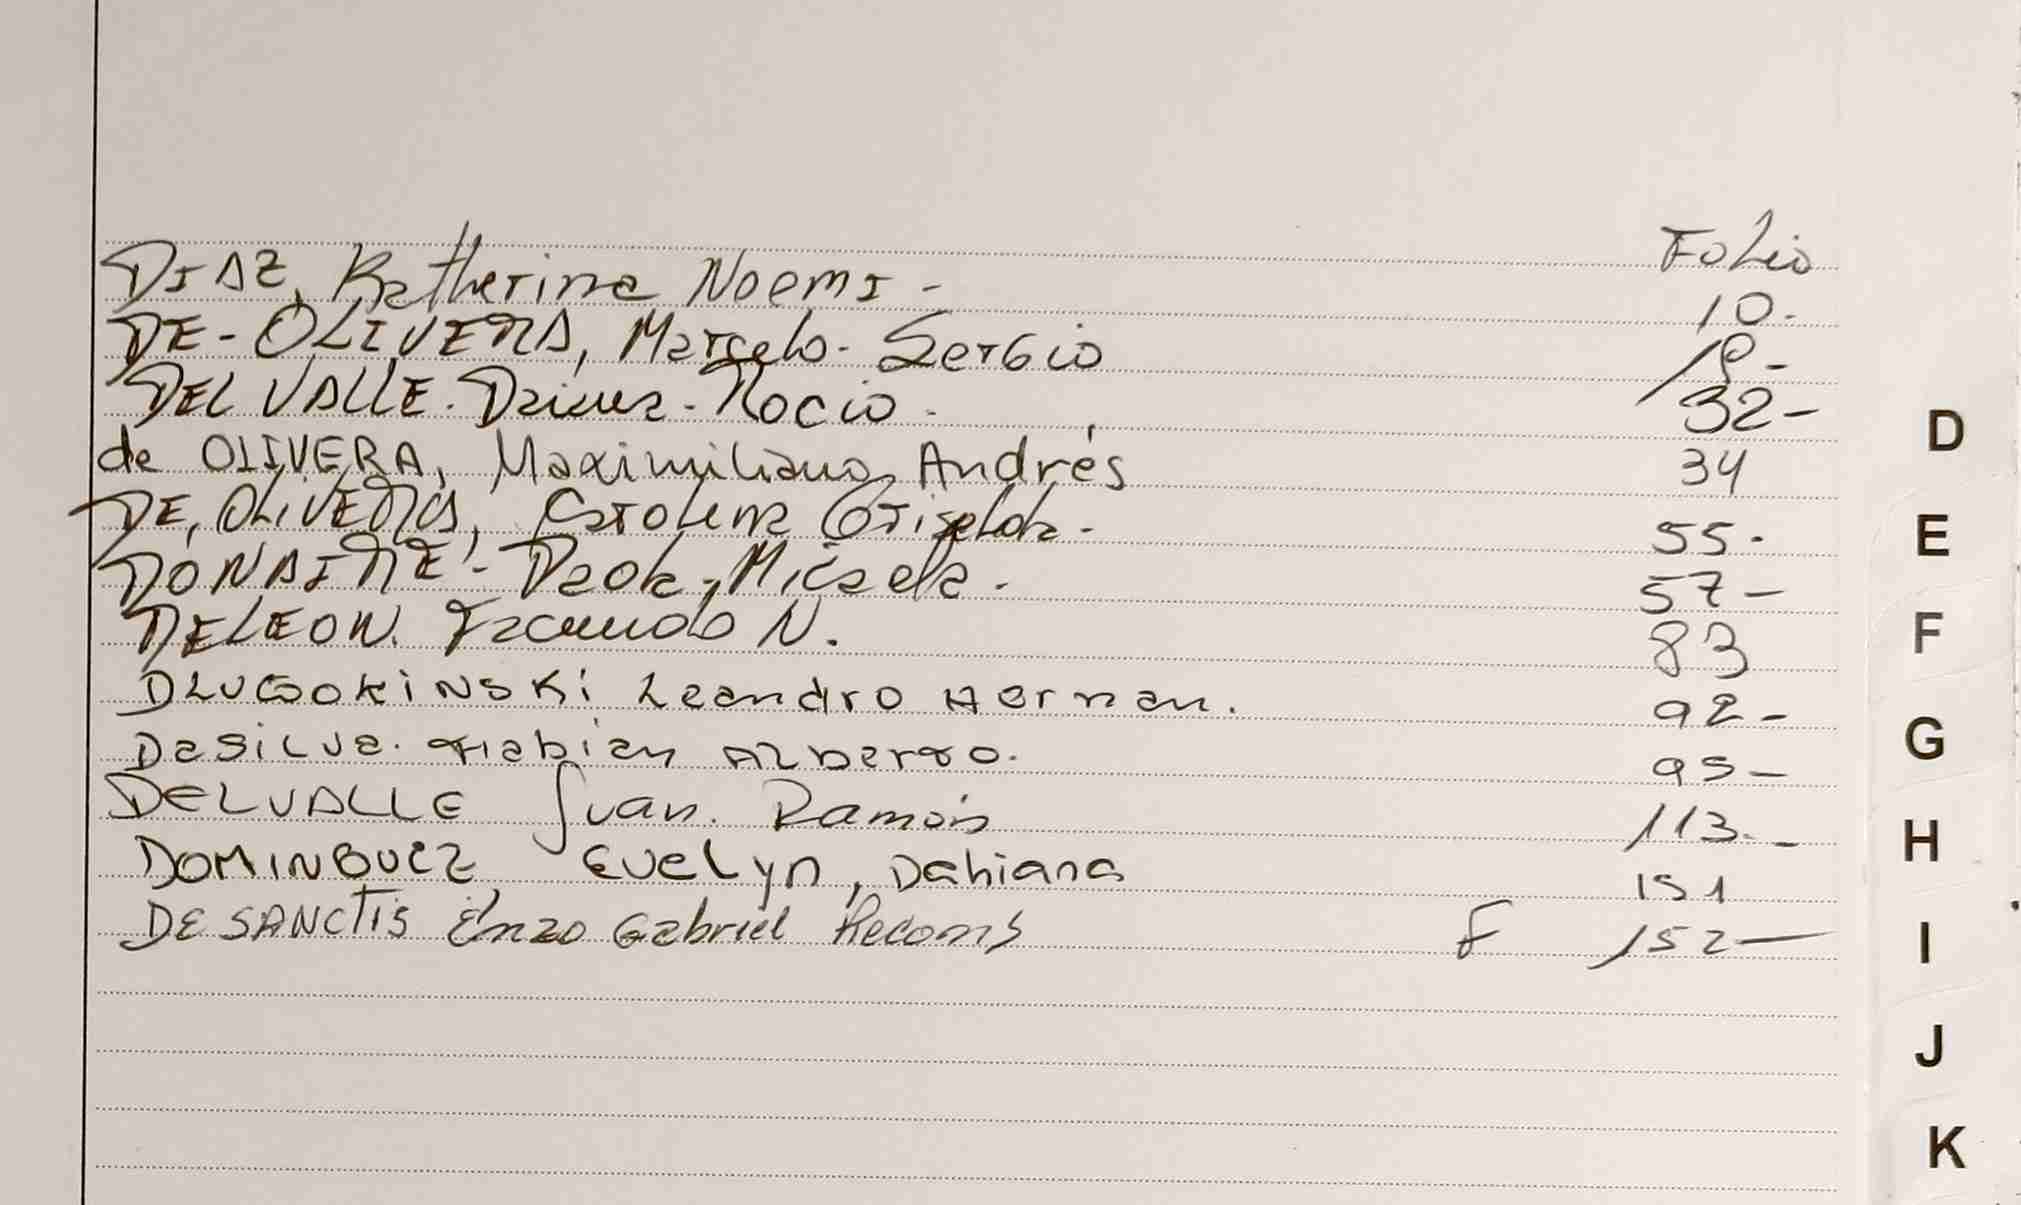 Folio
DIAZ, Katherina Noemi - 10.
DE-OLIVERA, Marcelo. Sergio 19-
DEL VALLE. Daiana. Rocio. 32-
de OLIVERA, Maximiliano Andrés 34
DE, OLIVERA, Carolina Griselda. 55.
DONAIRE - Paola, Micaela. 57-
DELEON. Facundo N. 83
DLUGOKINSKI Leandro Hernan. 92-
Dasilva. Fabian Alberto. 95-
DELVALLE Juan. Ramón 113.-
DOMINGUEZ, Evelyn, Dahiana 151
DE SANCTIS Enzo Gabriel F 152-
D
E
F
G
H
I
J
K